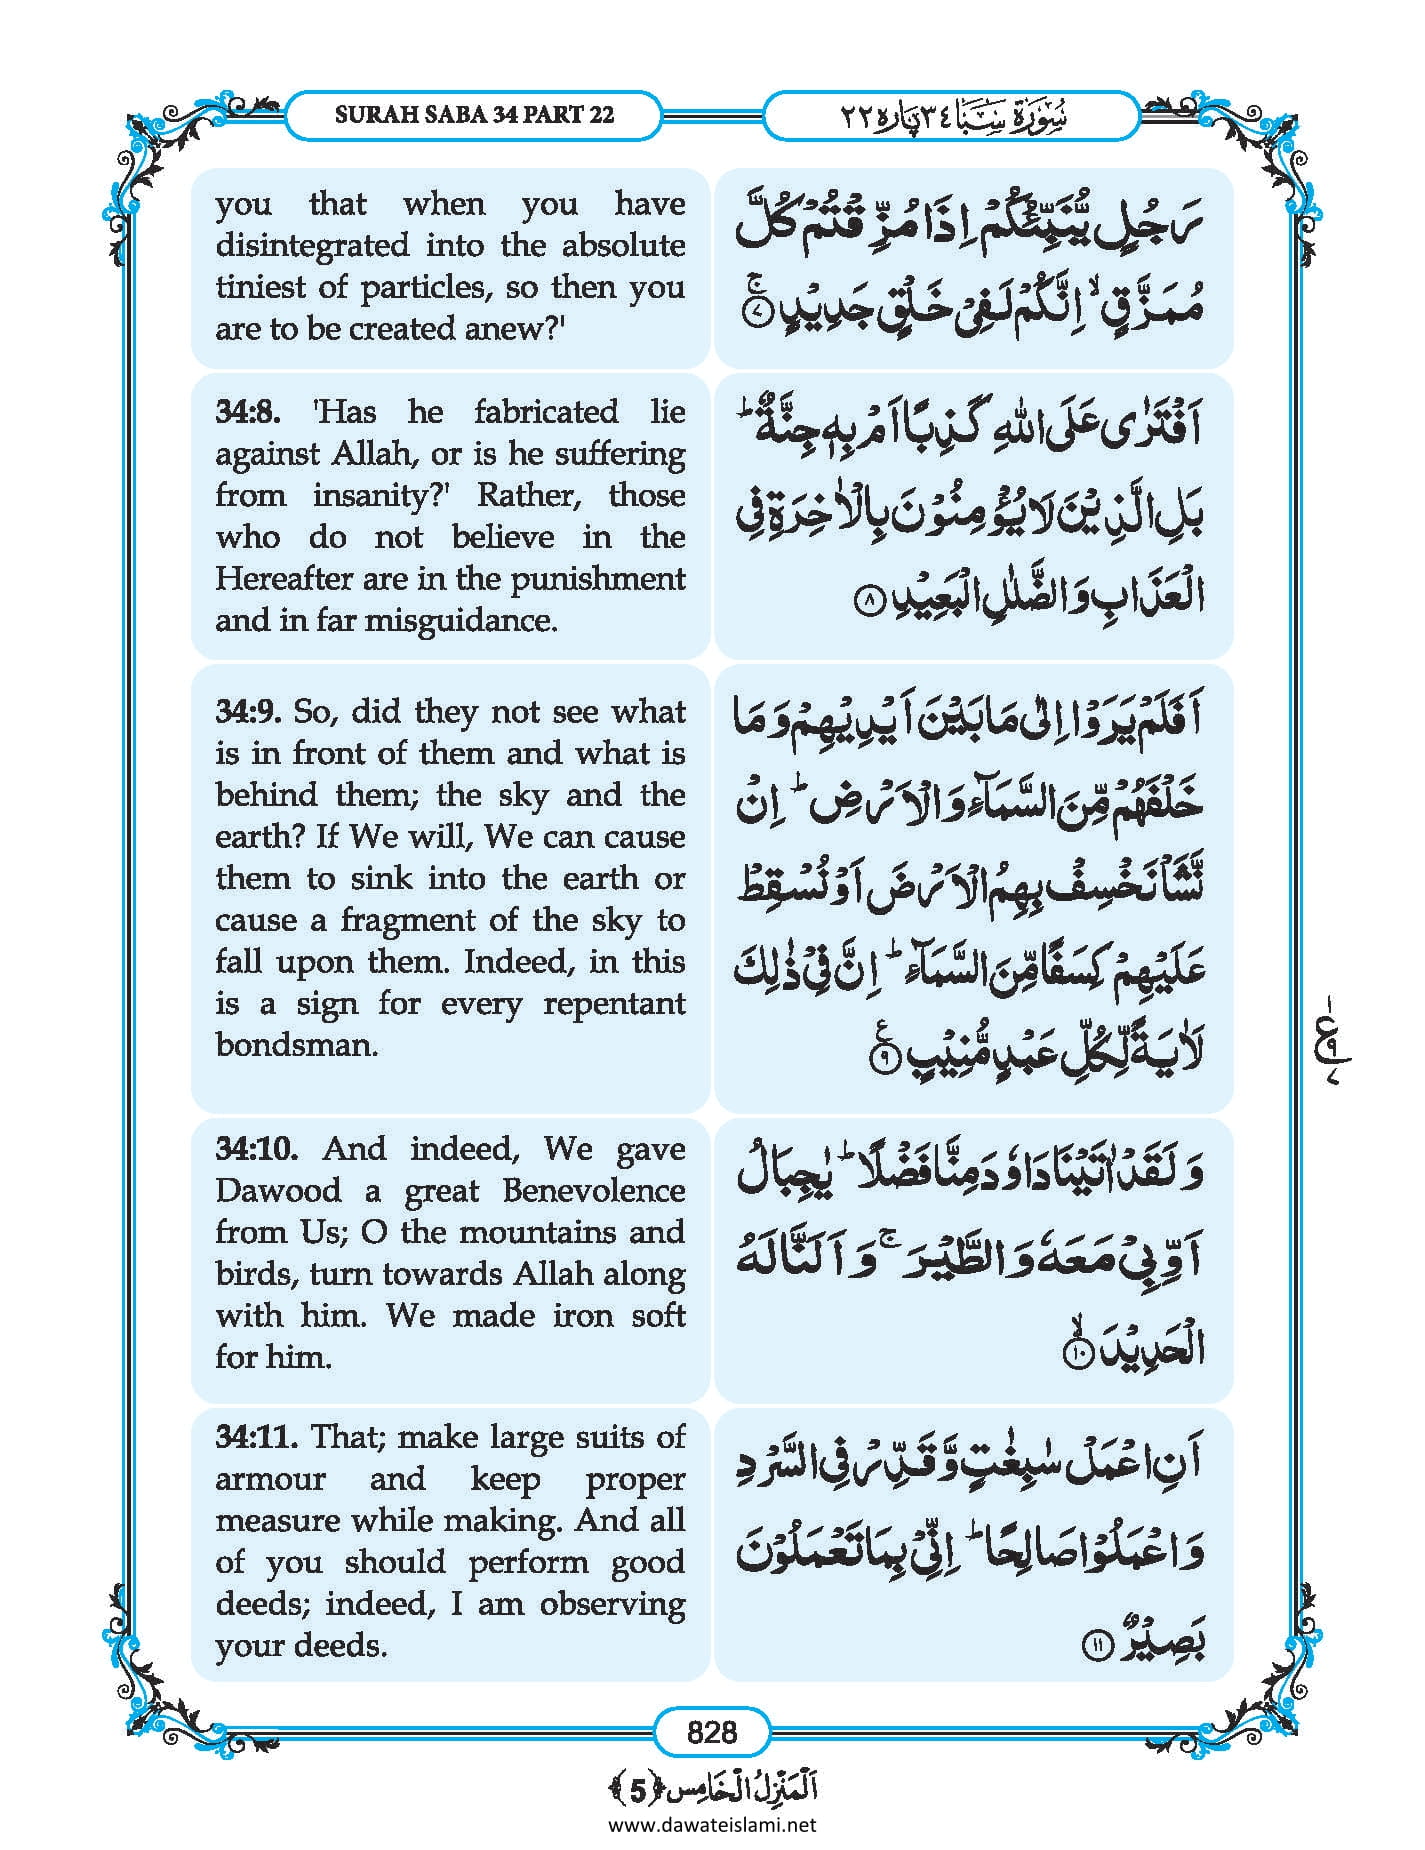 SURAH SABA 34 PART 22
سُوْرَۃُ سَبَا ٣٤ پارہ ٢٢
you that when you have
disintegrated into the absolute
tiniest of particles, so then you
are to be created anew?'
رَجُلٍ یُّنَبِّئُكُمْ اِذَا مُزِّقْتُمْ كُلَّ
مُمَزَّقٍ ۙ اِنَّكُمْ لَفِیْ خَلْقٍ جَدِیْدٍ ۚ ﴿۷﴾
34:8. 'Has he fabricated lie
against Allah, or is he suffering
from insanity?' Rather, those
who do not believe in the
Hereafter are in the punishment
and in far misguidance.
اَفْتَرٰى عَلَى اللّٰهِ كَذِبًا اَمْ بِهٖ جِنَّةٌ ؕ
بَلِ الَّذِیْنَ لَا یُؤْمِنُوْنَ بِالْاٰخِرَةِ فِی
الْعَذَابِ وَ الضَّلٰلِ الْبَعِیْدِ ﴿۸﴾
34:9. So, did they not see what
is in front of them and what is
behind them; the sky and the
earth? If We will, We can cause
them to sink into the earth or
cause a fragment of the sky to
fall upon them. Indeed, in this
is a sign for every repentant
bondsman.
اَفَلَمْ یَرَوْا اِلٰى مَا بَیْنَ اَیْدِیْهِمْ وَ مَا
خَلْفَهُمْ مِّنَ السَّمَآءِ وَ الْاَرْضِ ؕ اِنْ
نَّشَاْ نَخْسِفْ بِهِمُ الْاَرْضَ اَوْ نُسْقِطْ
عَلَیْهِمْ كِسَفًا مِّنَ السَّمَآءِ ؕ اِنَّ فِیْ ذٰلِكَ
لَاٰیَةً لِّكُلِّ عَبْدٍ مُّنِیْبٍ ﴿۹﴾ ع
١
ع ٩
٧
34:10. And indeed, We gave
Dawood a great Benevolence
from Us; O the mountains and
birds, turn towards Allah along
with him. We made iron soft
for him.
وَ لَقَدْ اٰتَیْنَا دَاوٗدَ مِنَّا فَضْلًا ؕ یٰجِبَالُ
اَوِّبِیْ مَعَهٗ وَ الطَّیْرَ ۚ وَ اَلَنَّا لَهُ
الْحَدِیْدَ ۙ ﴿۱۰﴾
34:11. That; make large suits of
armour and keep proper
measure while making. And all
of you should perform good
deeds; indeed, I am observing
your deeds.
اَنِ اعْمَلْ سٰبِغٰتٍ وَّ قَدِّرْ فِی السَّرْدِ
وَ اعْمَلُوْا صَالِحًا ؕ اِنِّیْ بِمَا تَعْمَلُوْنَ
بَصِیْرٌ ﴿۱۱﴾
828
اَلْمَنْزِلُ الْخَامِس ﴿5﴾
www.dawateislami.net